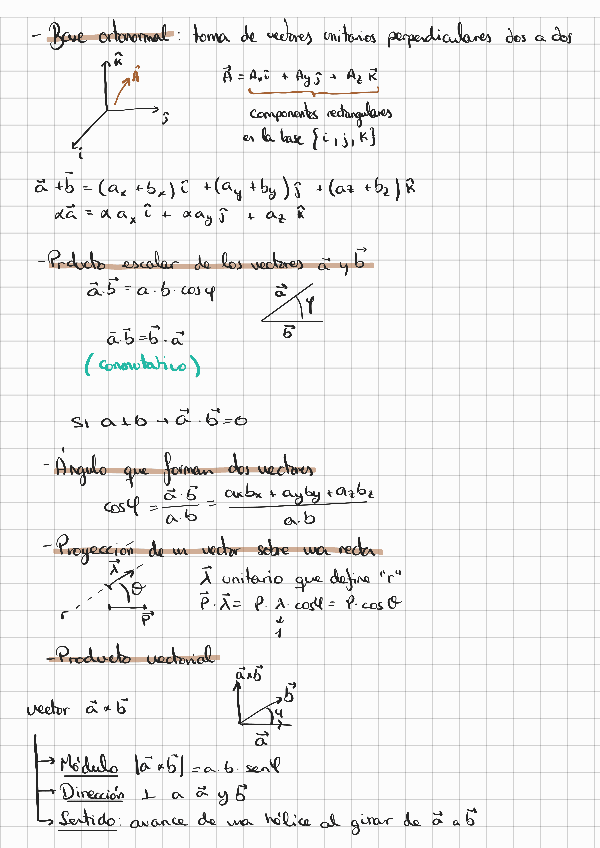 - Base ortonormal: toma de vectores unitarios perpendiculares dos a dos
k̂
A⃗
ĵ
i
A⃗ = Axî + Ayĵ + Az k̂
componentes rectangulares
en la base {i, j, k}
a⃗ + b⃗ = (ax + bx) î + (ay + by) ĵ + (az + bz) k̂
αa⃗ = α ax î + αay ĵ + az k̂
- Prducto escalar de los vectores a⃗ y b⃗
a⃗·b⃗ = a·b·cosφ
a⃗
φ
b⃗
a⃗·b⃗ = b⃗·a⃗
(conmutativo)
Si a ⊥ b → a⃗·b⃗ = 0
- Ángulo que forman dos vectores
cosφ = a⃗·b⃗ / a·b = axbx + ayby + azbz / a·b
- Proyección de un vector sobre una recta
λ⃗
θ
r
P⃗
λ⃗ unitario que define "r"
P⃗·λ⃗ = P·λ·cosφ = P·cosθ
↓
1
- Producto vectorial
a⃗×b⃗
b⃗
φ
a⃗
vector a⃗ × b⃗
→ Módulo |a⃗ × b⃗| = a·b·senφ
→ Dirección ⊥ a a⃗ y b⃗
→ Sentido: avance de una hélice al girar de a⃗ a b⃗